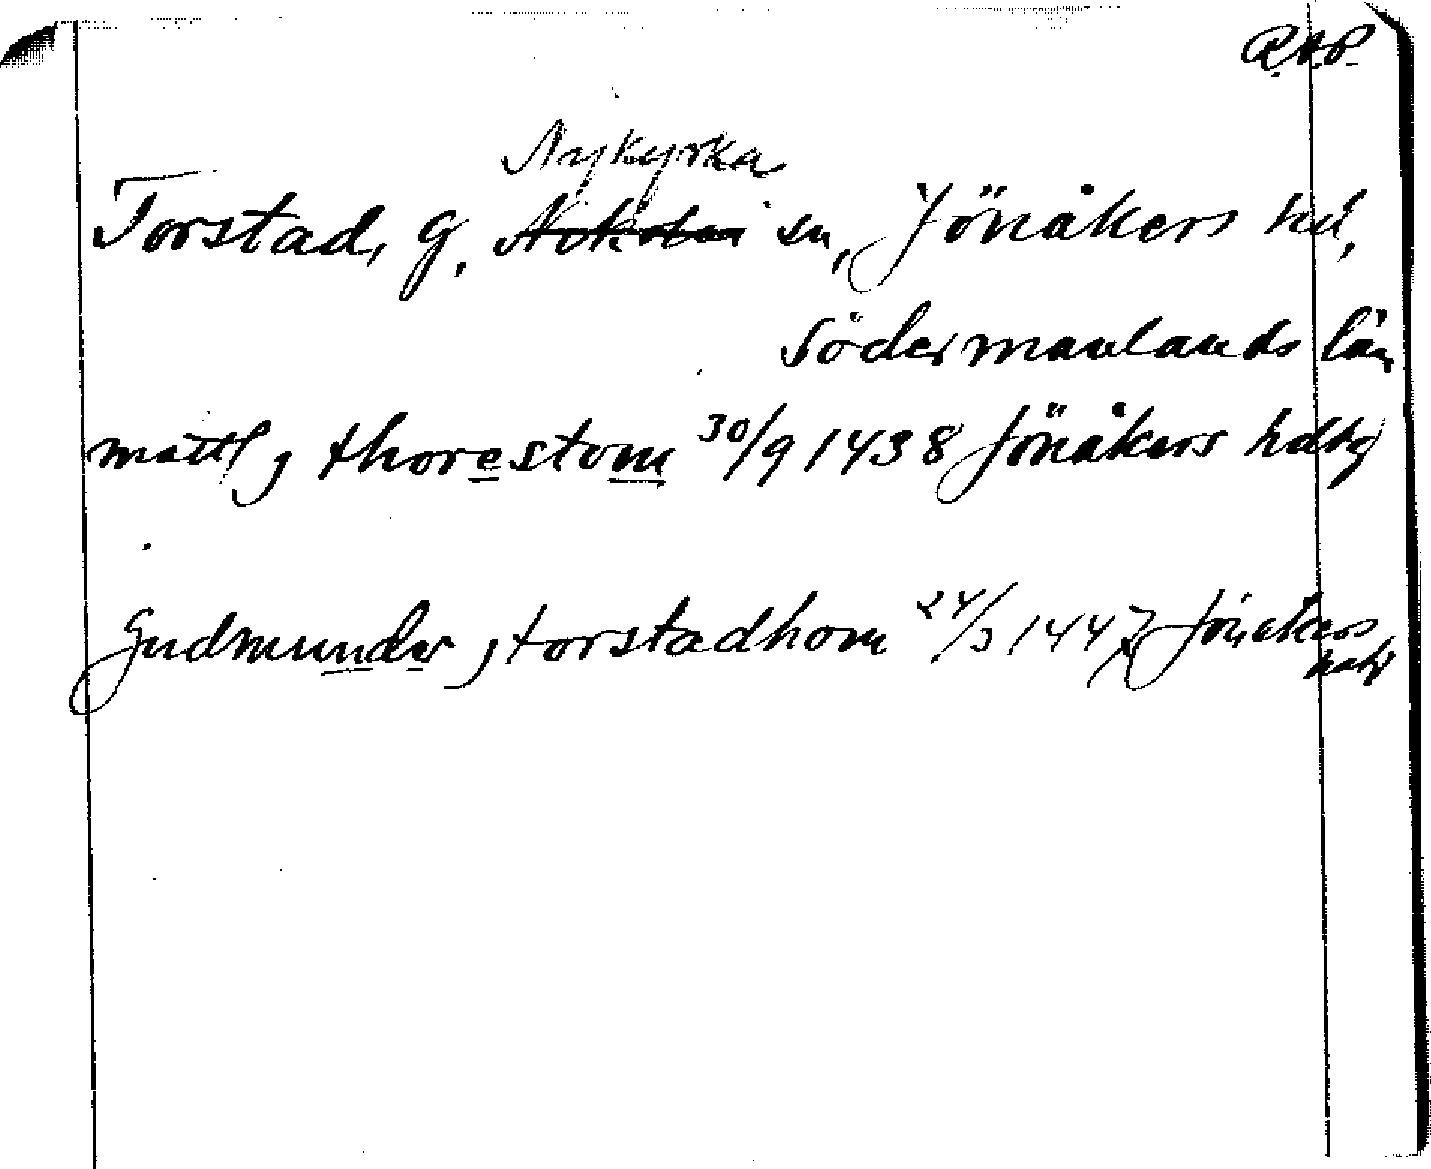 R.A.P.
Nykyrka
Torstad, G, sn, Jönåkers hd,
Södermanlands län
mattl j thorestom 30/9 1438 Jönåkers hdtg
Gudmunder j torstadhom 24/3 1447 Jönåkers